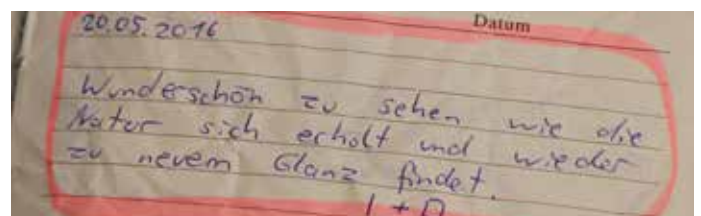 Datum
20.05.2016
Wunderschön zu sehen wie die
Natur sich erholt und wieder
zu neuem Glanz findet.